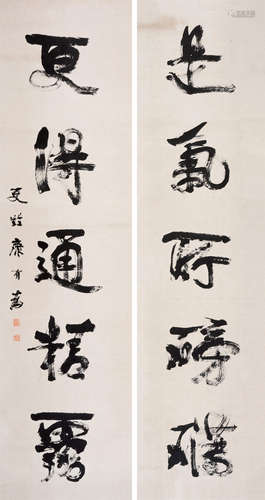 是氣所磅礴
更得通精靈
更甡康有為